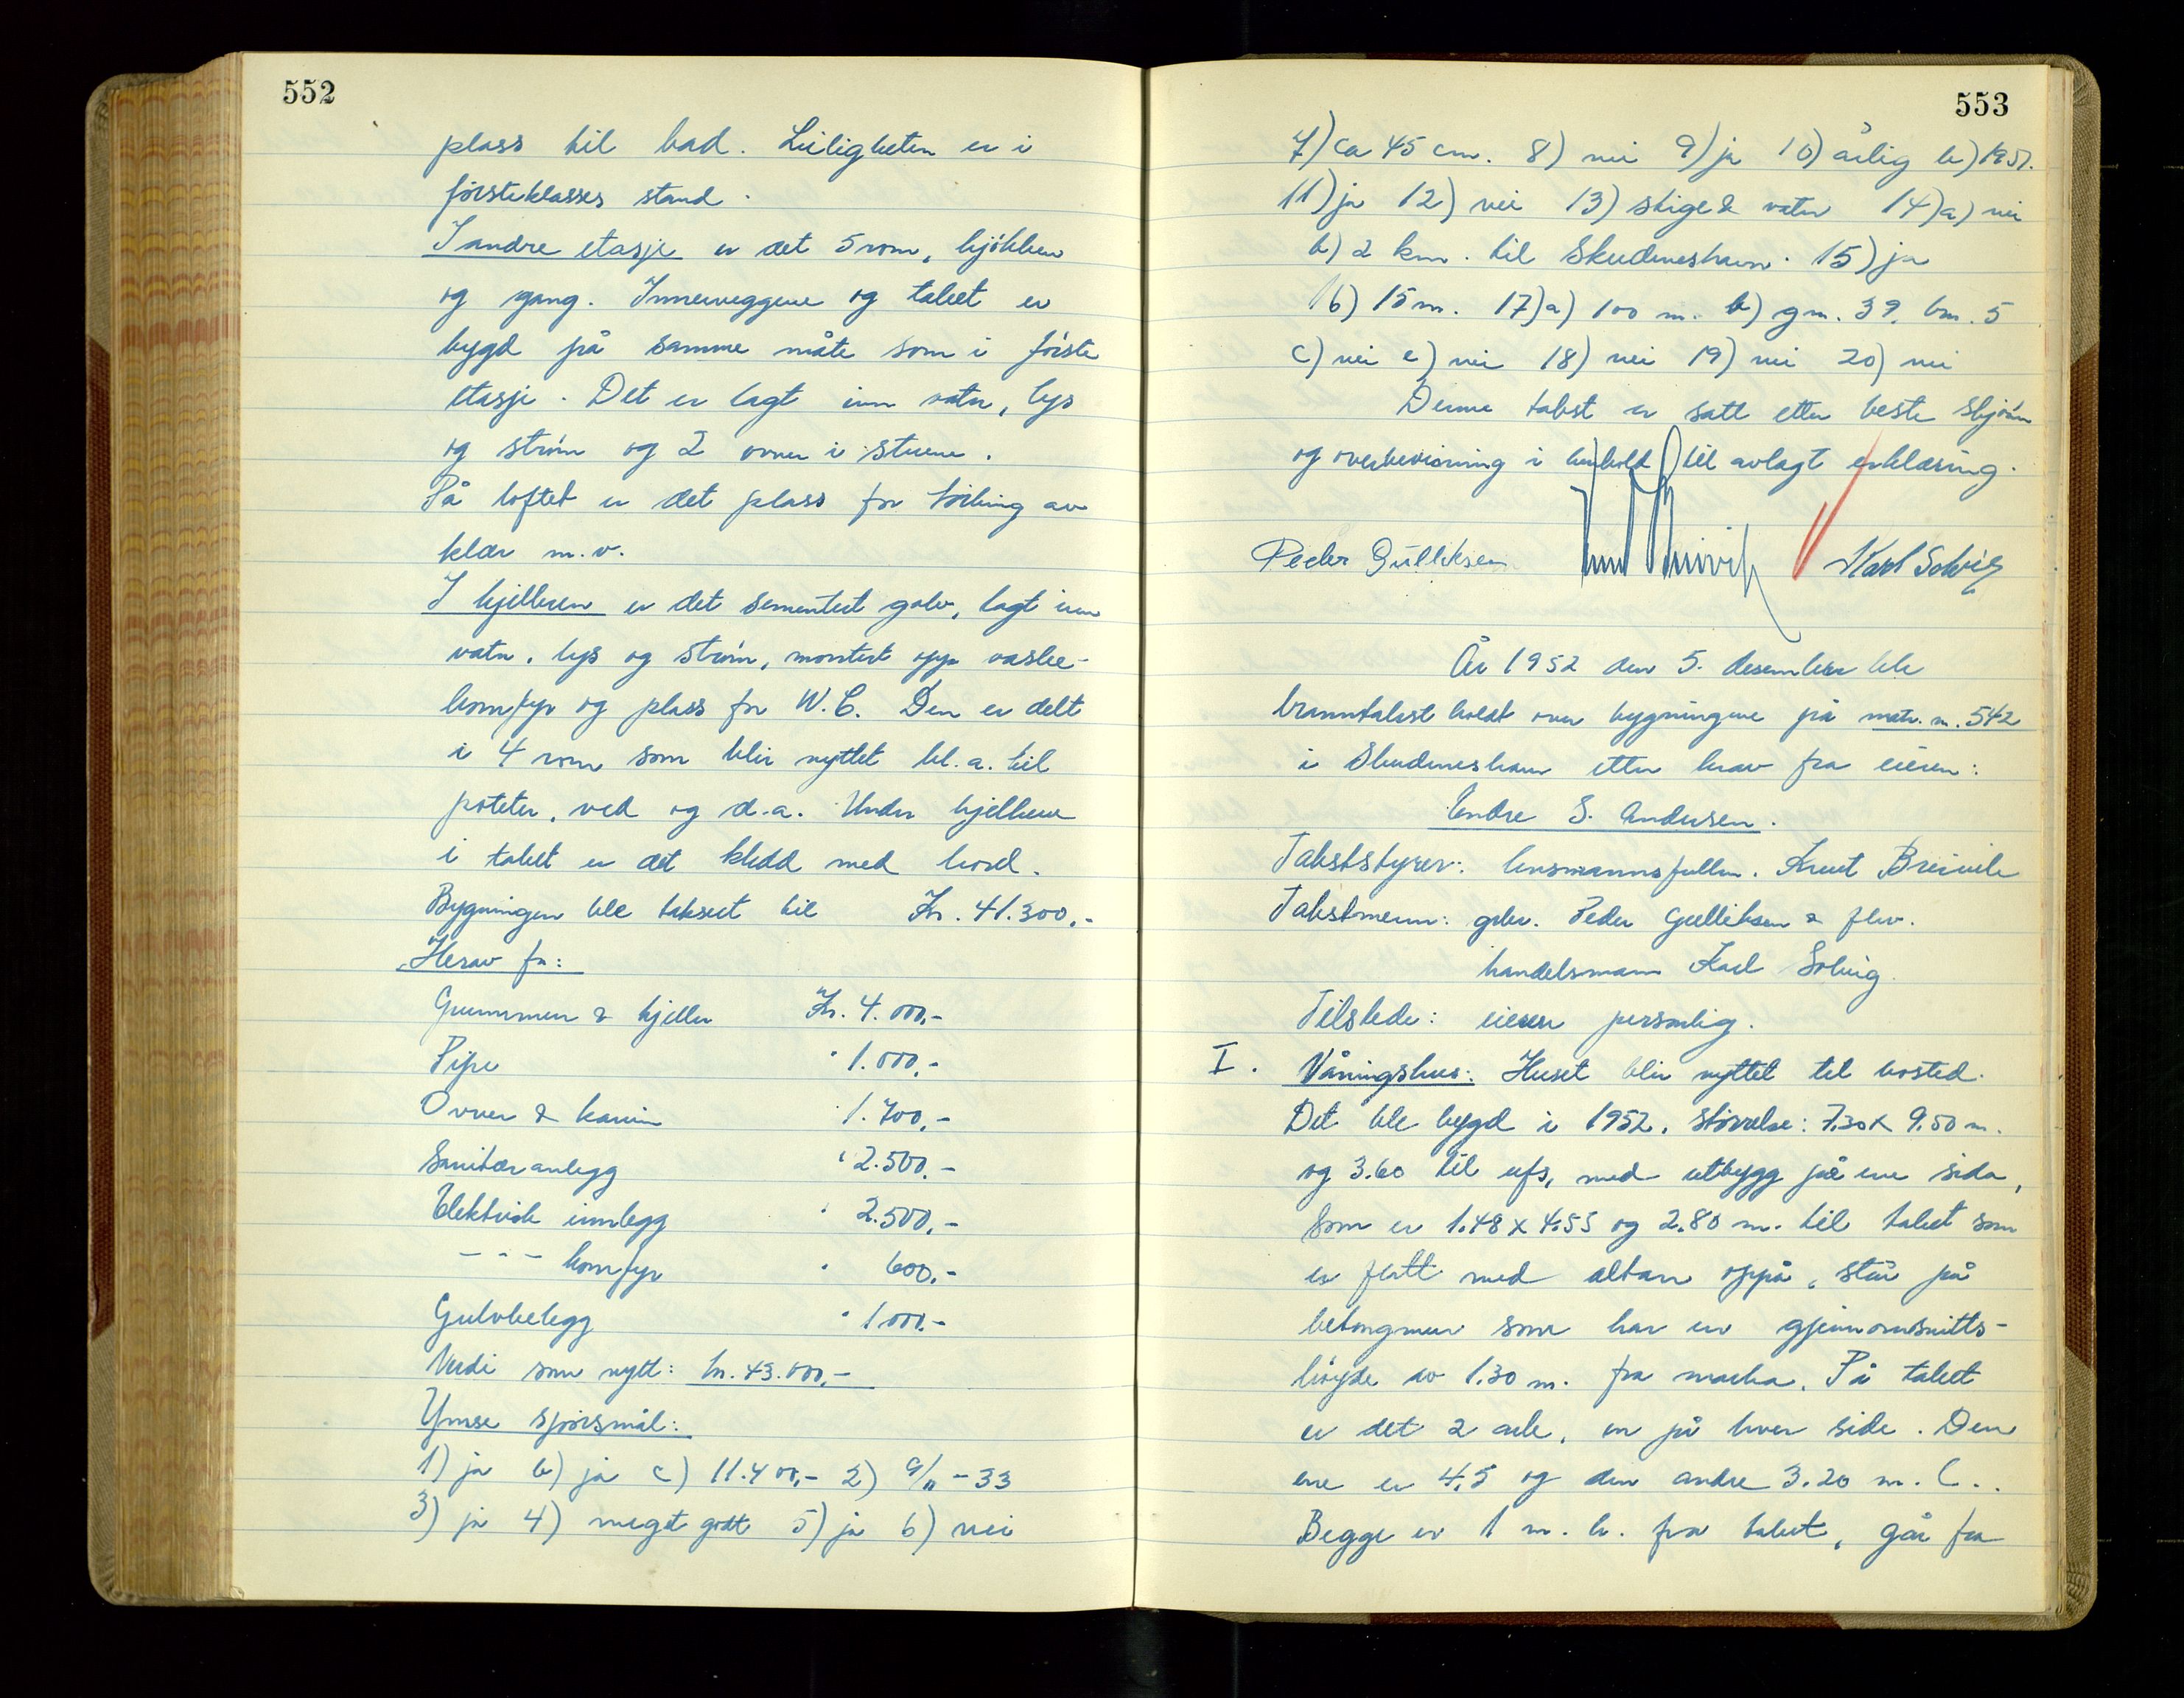 552
plass til bad. Leiligheten er i
førsteklasses stand.
I andre etasje er det 5 rom, kjøkken
og gang. Innerveggene og taket er
bygd på samme måte som i første
etasje. Det er lagt inn vatn, lys
og strøm og 2 ovner i stuene.
På loftet er det plass for tørking av
klær m.v.
I kjelleren er det sementert golv, lagt inn
vatn, lys og strøm, montert opp vaske-
komfyr og plass for W.C. Den er delt
i 4 rom som blir nyttet bl.a. til
poteter, ved og d.a. Under kjelleren
i taket er det kledd med bord.
Bygningen ble taksert til Kr. 41.300,-
Herav for:
Grunnmur & kjeller Kr. 4.000,-
Pipe " 1.000,-
Ovner & kamin " 1.700,-
Sanitæranlegg " 2.500,-
Elektrisk innlegg " 2.500,-
- " - komfyr " 600,-
Gulvbelegg " 1000,-
Verdi som nytt: kr. 43.000,-
Ymse spørsmål:
1) ja b) ja c) 11.400,- 2) 9/11 - 33
3) ja 4) meget godt 5) ja 6) nei
553
7) ca 45 cm. 8) nei 9) ja 10) årlig b) 1951.
11) ja 12) nei 13) stige & vatn 14) a) nei
b) 2 km. til Skudeneshavn. 15) ja
16) 15 m. 17) a) 100 m. b) gnr. 39. bnr. 5
c) nei e) nei 18) nei 19) nei 20) nei
Denne takst er satt etter beste skjønn
og overbevisning i henhold til avlagt erklæring.
Peder Gulliksen Knut Breivik Karl Solvig
År 1952 den 5. desember ble
branntakst holdt over bygningene på matr. nr. 542
i Skudeneshavn etter krav fra eieren:
Endre S. Andersen.
Takststyrer: lensmannsfullm. Knut Breivik
Takstmenn: gbr. Peder Gulliksen & fhv.
handelsmann Karl Solvig.
Tilstede: eieren personlig.
I. Våningshus: Huset blir nyttet til bosted.
Det ble bygd i 1952, størrelse: 7.30 x 9.50 m.
og 3.60 til ufs, med utbygg på ene sida,
som er 1.48 x 4.55 og 2.80 m. til taket som
er flatt med altan oppå, står på
betongmur som har en gjennomsnitts-
høyde av 1.30 m. fra marka. På taket
er det 2 ark, en på hver side. Den
ene er 4,5 og den andre 3.20 m. l..
Begge er 1 m. b. fra taket, går fra